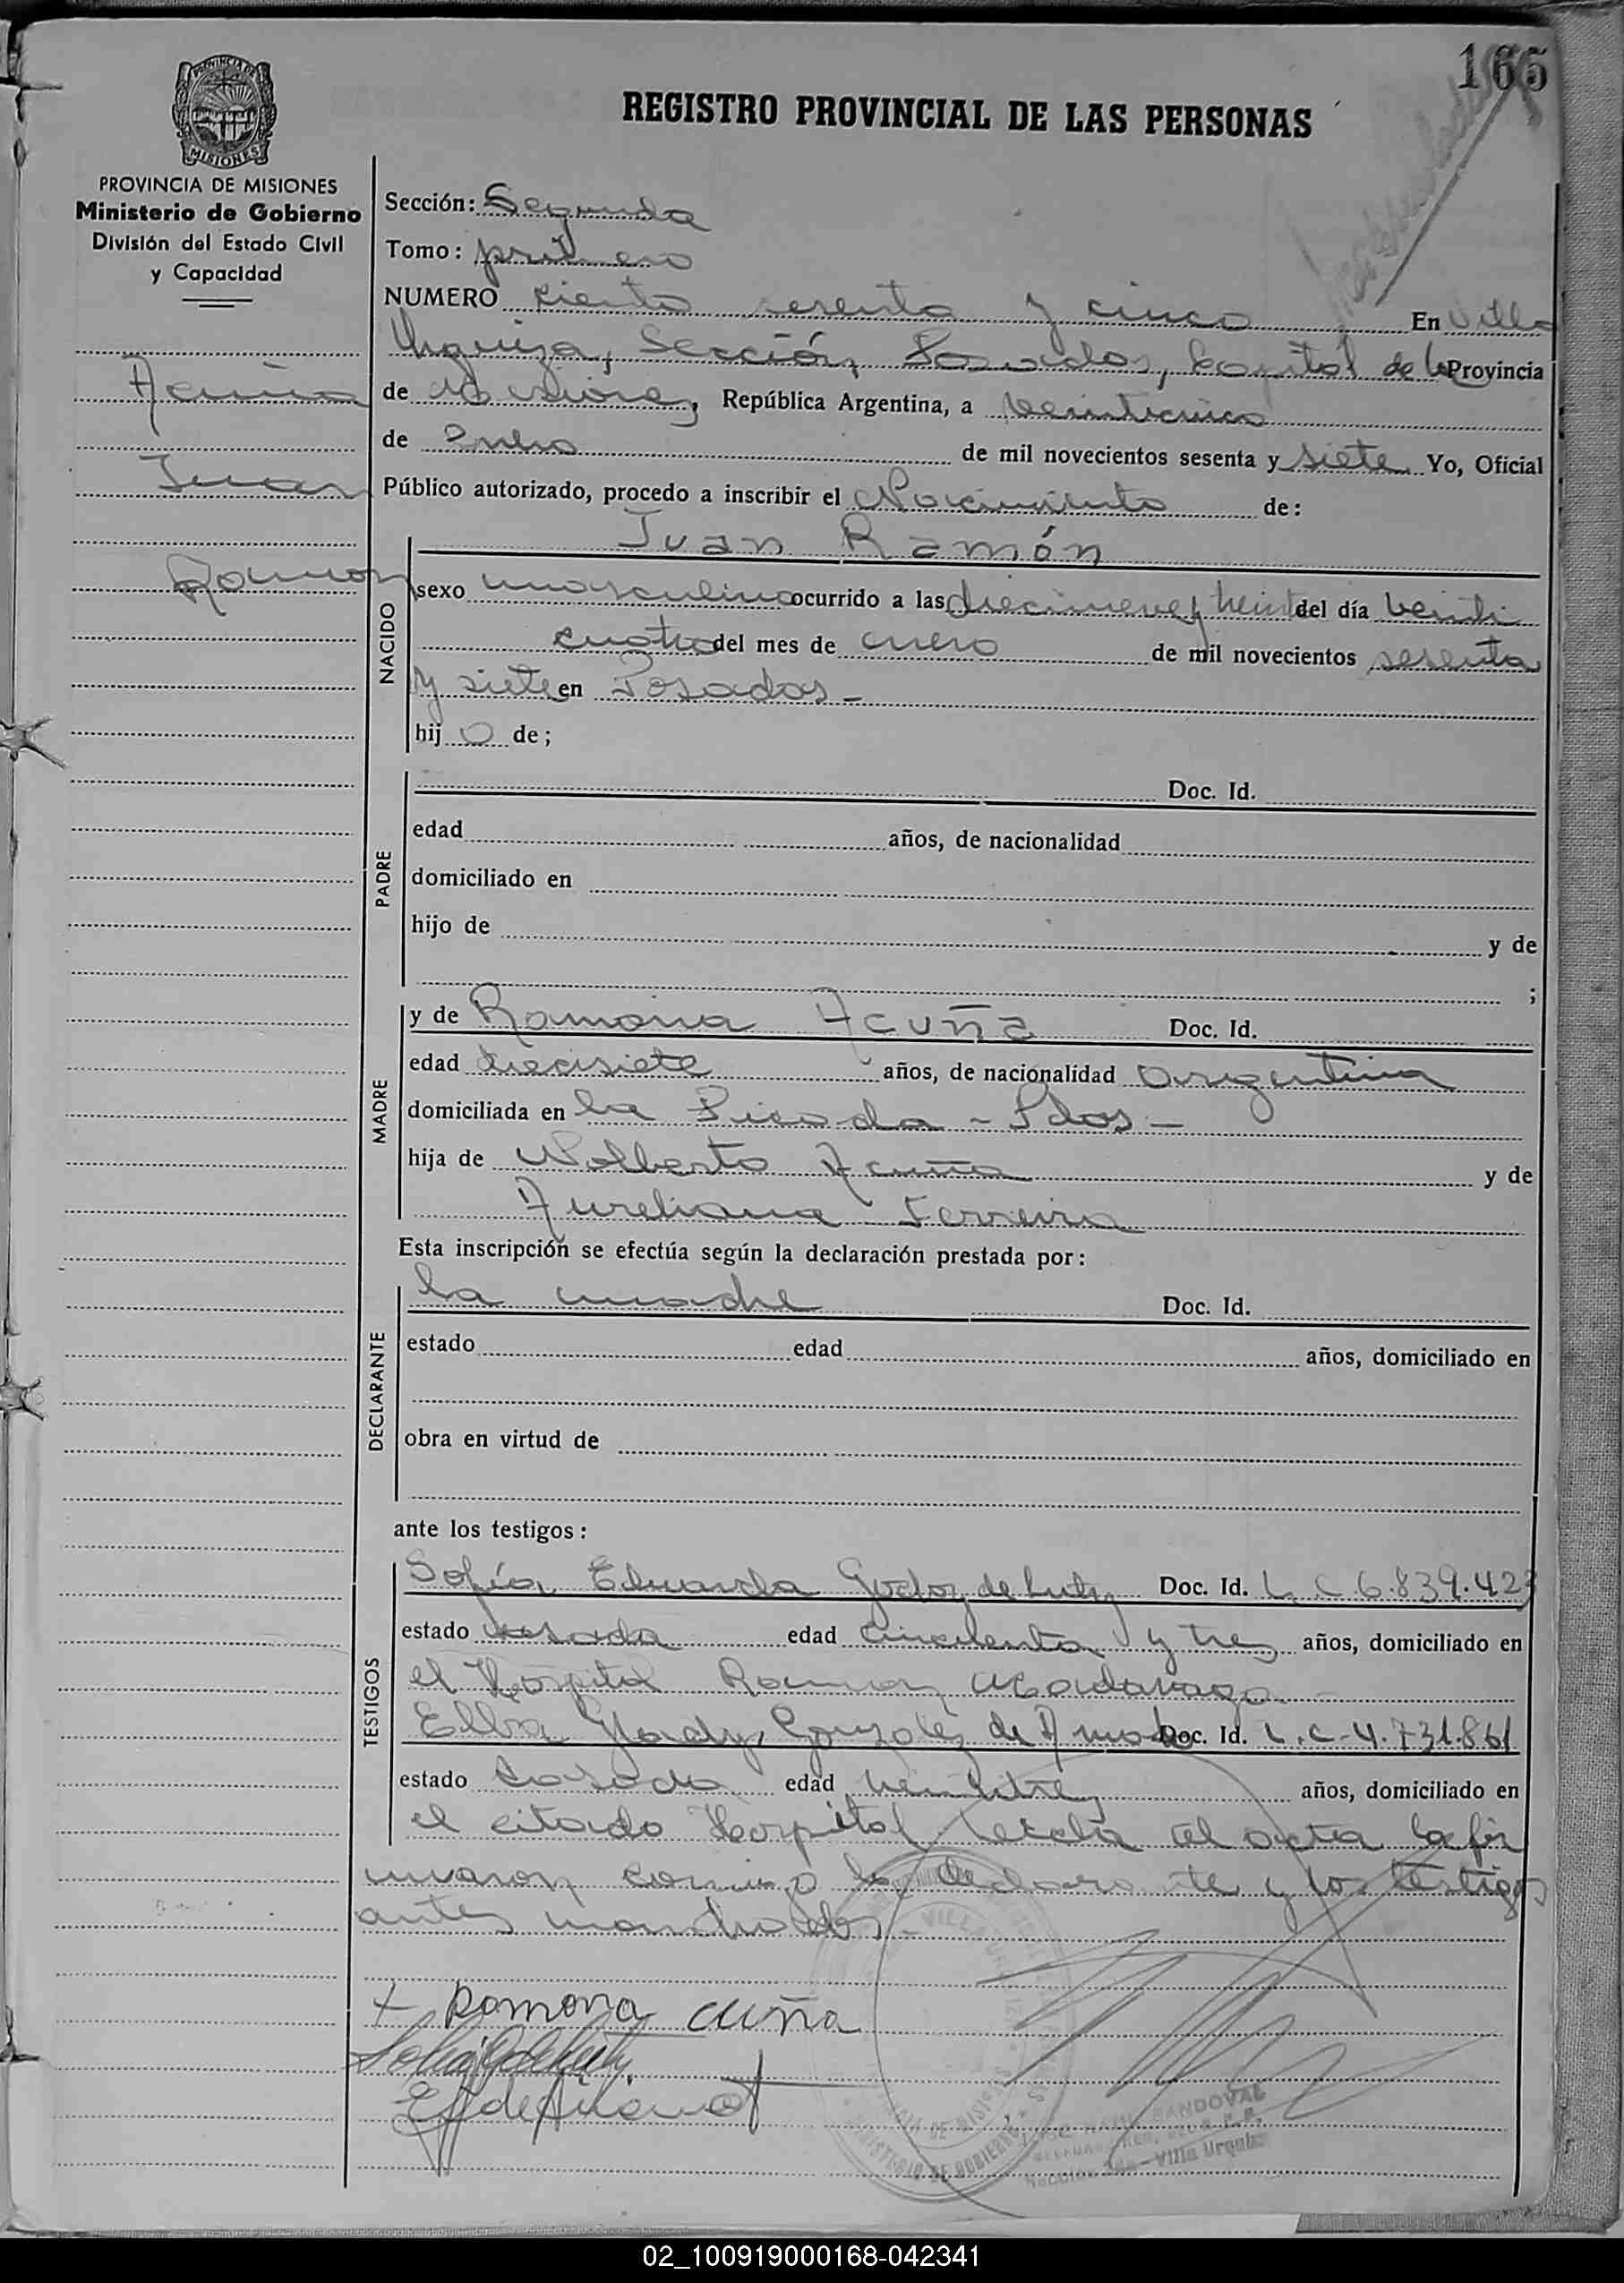 165
PROVINCIA DE
MISIONES
REGISTRO PROVINCIAL DE LAS PERSONAS
PROVINCIA DE MISIONES
Ministerio de Gobierno
División del Estado Civil
y Capacidad
Acuña
Juan
Ramon
Sección: Segunda
Tomo: primero
NUMERO ciento sesenta y cinco En Villa
Urquiza, Sección Posadas, Capital de la Provincia
de Misiones, República Argentina, a veinticinco
de Enero de mil novecientos sesenta y siete Yo, Oficial
Público autorizado, procedo a inscribir el Nacimiento de:
NACIDO
Juan Ramón
sexo masculino ocurrido a las diecinueve y treinta del día veinti
cuatro del mes de enero de mil novecientos sesenta
y siete en Posadas -
hij o de;
PADRE
Doc. Id.
edad años, de nacionalidad
domiciliado en
hijo de y de
;
MADRE
y de Ramona Acuña Doc. Id.
edad diecisiete años, de nacionalidad Argentina
domiciliada en La Picada - Pdas -
hija de Nolberto Acuña y de
Aureliana Ferreira
Esta inscripción se efectúa según la declaración prestada por:
DECLARANTE
la madre Doc. Id.
estado edad años, domiciliado en
obra en virtud de
ante los testigos:
TESTIGOS
Sofía Eduarda Godoy de Doc. Id. L.C 6.839.423
estado casada edad cincuenta y tres años, domiciliado en
el Hospital Ramon Madariaga
Elba Glady González de Doc. Id. L.C-4.731.861
estado casada edad veintitres años, domiciliado en
el citado Hospital Leída el acta la fir
maron conmigo la declarante y los testigos
antes mencionados -
+ Ramona cuña
SANDOVAL
Villa Urquiza
02_100919000168-042341